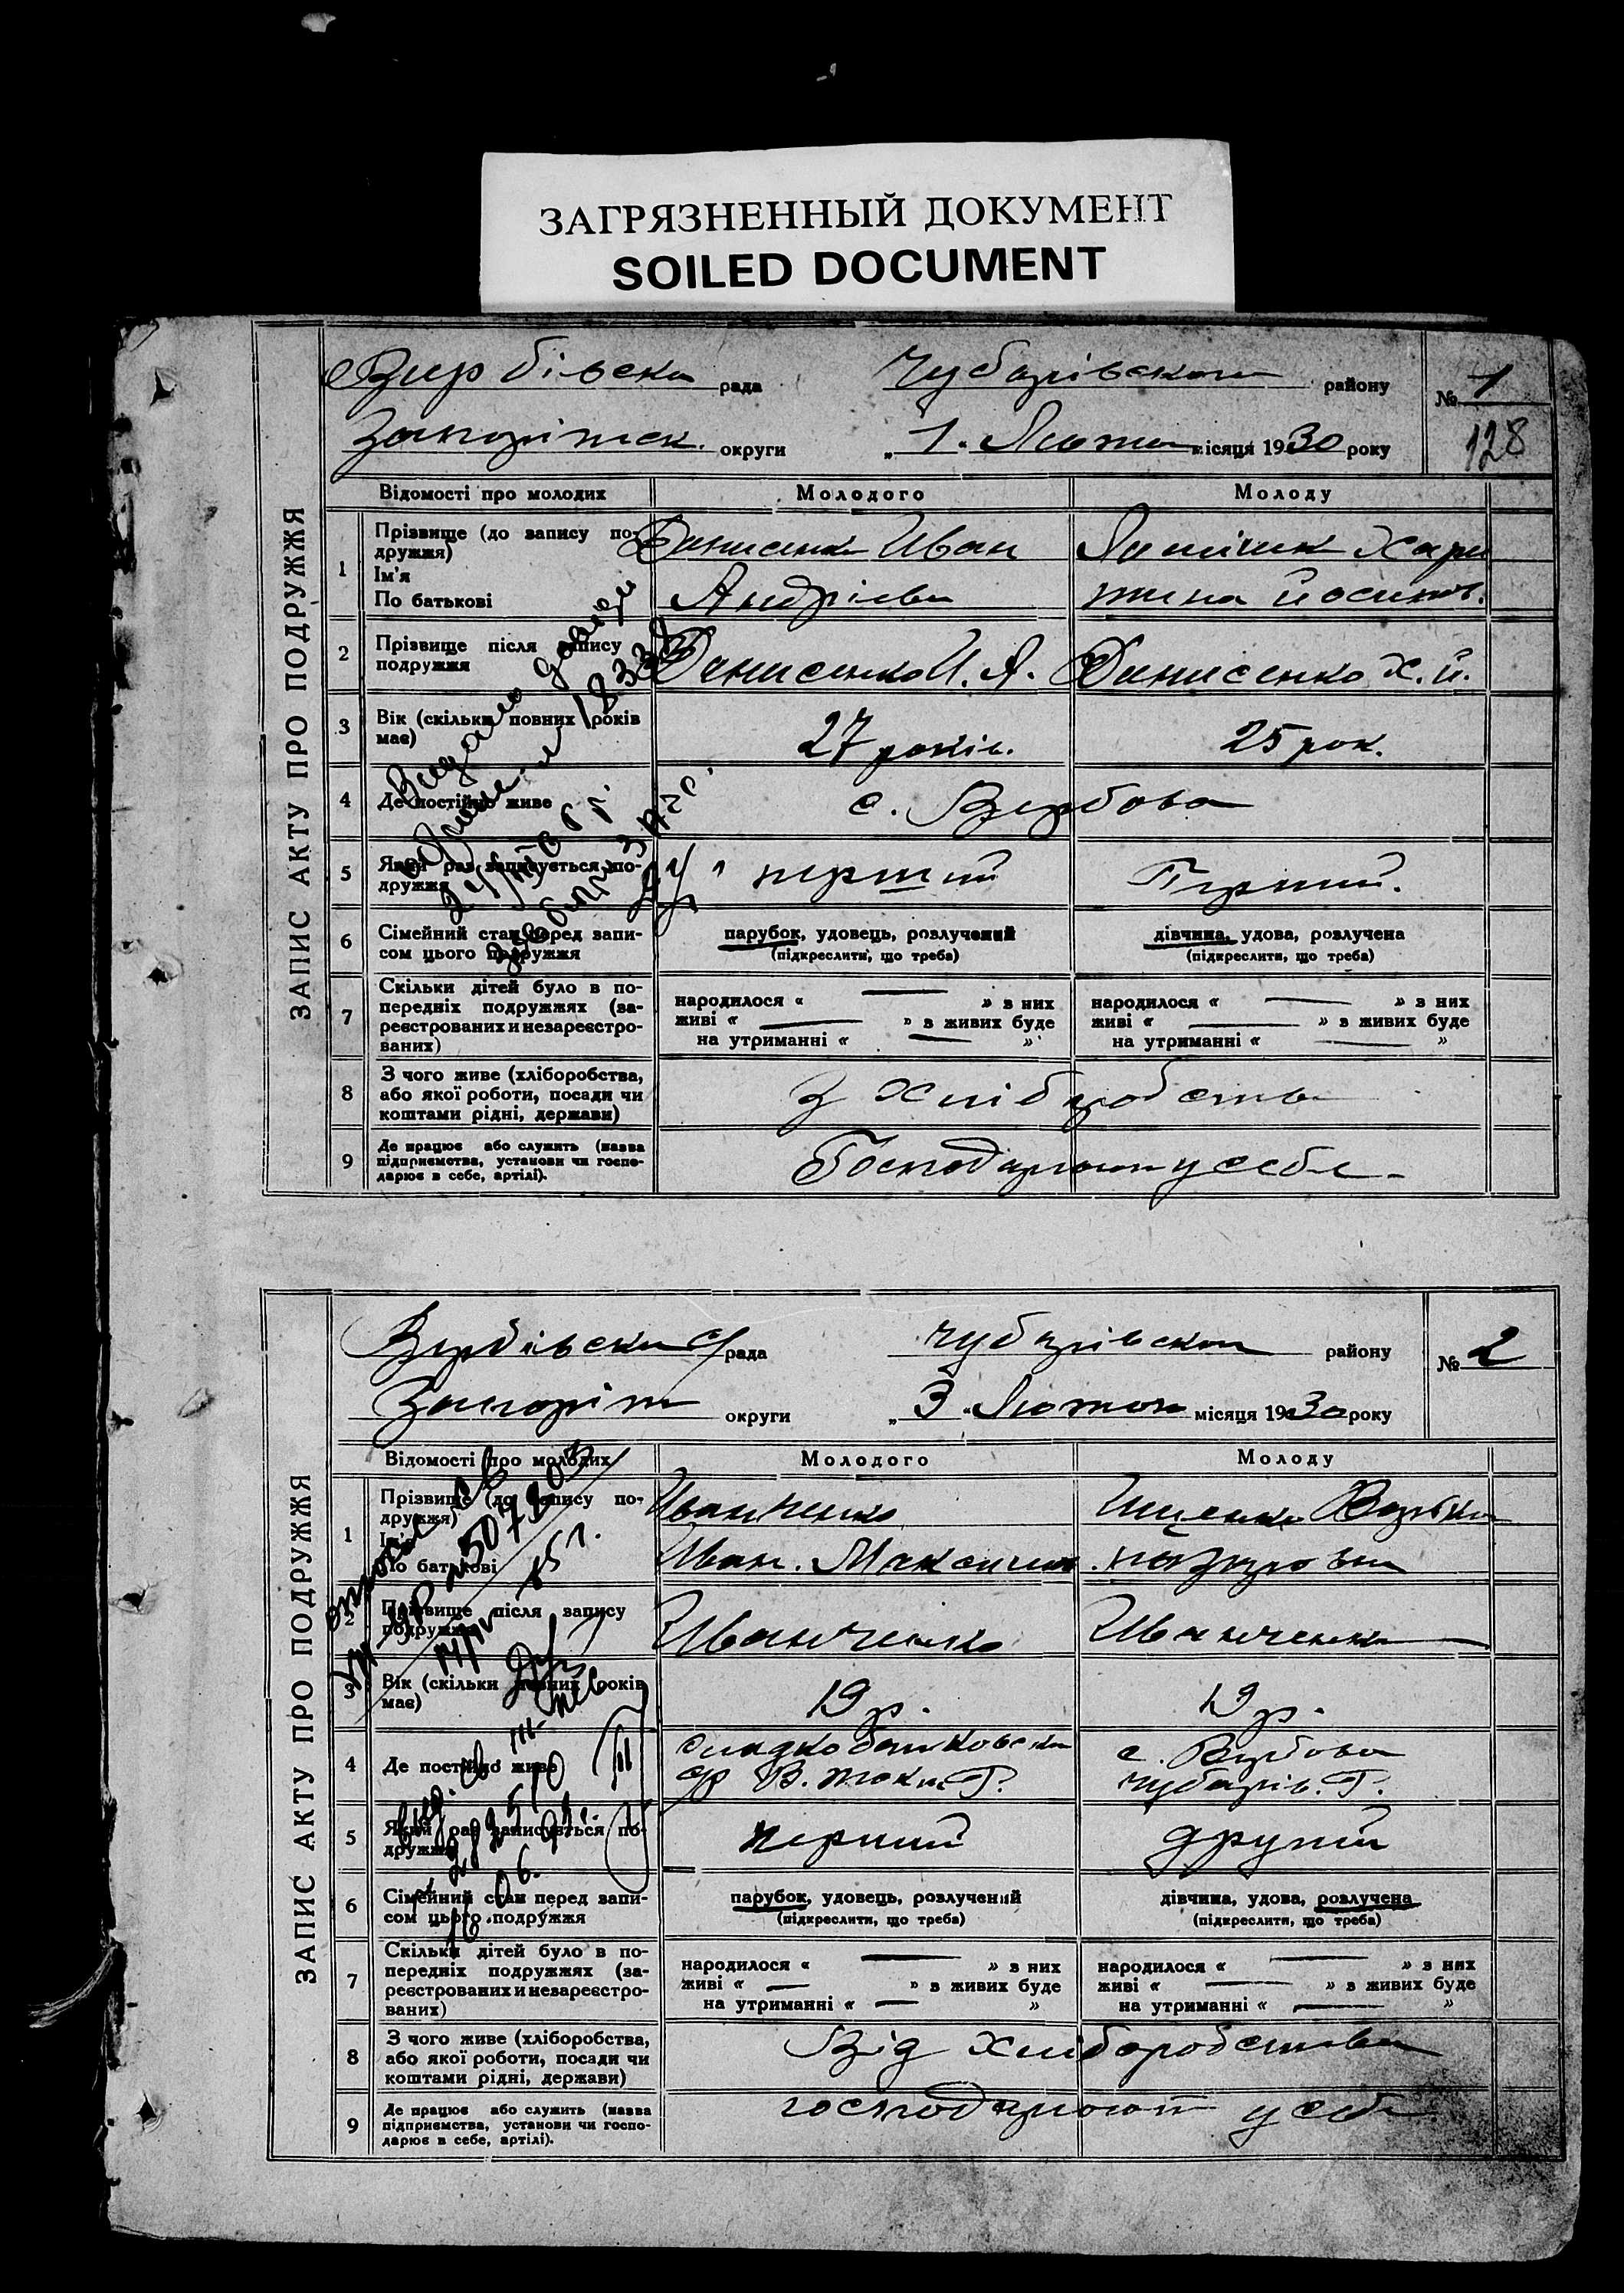 ЗАГРЯЗНЕННЫЙ ДОКУМЕНТ
SOILED DOCUMENT
ЗАПИС АКТУ ПРО ПОДРУЖЖЯ
рада Чубарівском району № 1
округи „1“ Лютого місяця 1930 року 128
Відомості про молодих Молодого Молоду
1 Прізвище (до запису по-
дружжя)
Ім'я
По батькові
Иван
Андріев
Хари
тина Йосипов.
2 Прізвище після запису
подружжя
Данисенко И. А. Данисенко Х. Й.
3 Вік (скільки повних років
має)
27 років. 25 рок.
4 Де постійно живе с. Вербова
5 Який раз записується по-
дружжя
перший Перший.
6 Сімейний стан перед запи-
сом цього подружжя
парубок, удовець, розлучений
(підкреслити, що треба)
дівчина, удова, розлучена
(підкреслити, що треба)
7 Скільки дітей було в по-
передніх подружжях (за-
реєстрованих и незареєстро-
ваних)
народилося « — » з них
живі « — » з живих буде
на утриманні « — »
народилося « — » з них
живі « — » з живих буде
на утриманні « — »
8 З чого живе (хліборобства,
або якої роботи, посади чи
коштами рідні, держави)
З Хліборобства
9 Де працює або служить (назва
підприємства, установи чи госпо-
дарює в себе, артілі).
Господарюют у себе
ЗАПИС АКТУ ПРО ПОДРУЖЖЯ
Вербівска с/рада Чубарівском району № 2
округи „3“ Лютого місяця 1930 року
Відомості про молодих Молодого Молоду
1 Прізвище (до запису по-
дружжя)
Ім'я
По батькові
Иванченко
Иван. Максимов.
2 Прізвище після запису
подружжя
Иванченко Иванченко
3 Вік (скільки повних років
має)
19 р. 19 р.
4 Де постійно живе
с. Вербова
Чубарів. Р.
5 Який раз записується по-
дружжя
перший другий
6 Сімейний стан перед запи-
сом цього подружжя
парубок, удовець, розлучений
(підкреслити, що треба)
дівчина, удова, розлучена
(підкреслити, що треба)
7 Скільки дітей було в по-
передніх подружжях (за-
реєстрованих и незареєстро-
ваних)
народилося « — » з них
живі « — » з живих буде
на утриманні « — »
народилося « — » з них
живі « — » з живих буде
на утриманні « — »
8 З чого живе (хліборобства,
або якої роботи, посади чи
коштами рідні, держави)
Від хліборобства
9 Де працює або служить (назва
підприємства, установи чи госпо-
дарює в себе, артілі).
господарюют у себе